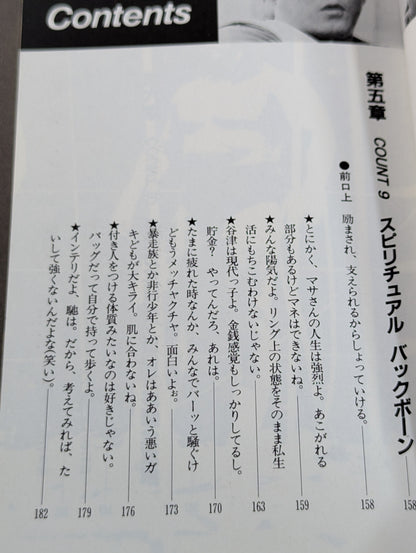 Contents
第五章 COUNT 9 スピリチュアル バックボーン
158
●前口上 励まされ、支えられるからしょっていける。
158
★とにかく、マサさんの人生は強烈よ。あこがれる
部分もあるけどマネはできないね。
159
★みんな陽気だよ。リング上の状態をそのまま私生
活にもちこむわけないじゃない。
163
★谷津は現代っ子よ。金銭感覚もしっかりしてるし。
貯金? やってんだろ、あれは。
170
★たまに疲れた時なんか、みんなでバーッと騒ぐけ
どもうメッチャクチャ。面白いよぉ。
173
★暴走族とか非行少年とか、オレはああいう悪いガ
キどもが大キライ。肌に合わないね。
176
★付き人をつける体質みたいなのは好きじゃない。
バッグだって自分で持って歩くよ。
179
★インテリだよ、馳は。だから、考えてみれば、た
いして強くないんだよな(笑い)。
182